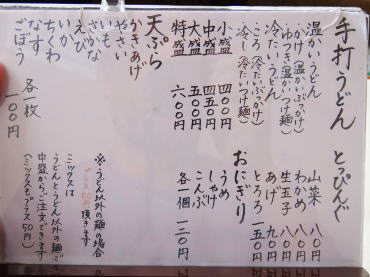 手打うどん
温かいうどん
かけ(温かいぶっかけ)
ゆつき(温かいつけ麺)
冷たいうどん
ころ(冷たいぶっかけ)
冷し(冷たいつけ麺)
小盛 四〇〇円
中盛 四五〇円
大盛 五〇〇円
特盛 六〇〇円
天ぷら
かきあげ
やさい
いも
さかな
えび
いか
ちくわ
なす
ごぼう
各一枚
一〇〇円
とっぴんぐ
山菜 八〇円
わかめ 八〇円
生玉子 八〇円
あげ 九〇円
とろろ 一五〇円
おにぎり
うめ
しゃけ
こんぶ
各一個 一三〇円
※うどん以外の麺の場合
プラス50円頂きます
ミックスは
うどんとうどん以外の麺で
中盛からご注文できます
(ミックスもプラス50円)